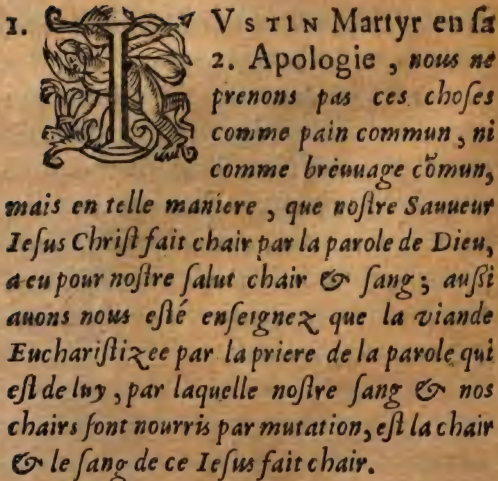 1. IVSTIN Martyr en ſa
2. Apologie, nous ne
prenons pas ces choſes
comme pain commun, ni
comme breuuage cõmun,
mais en telle maniere, que noſtre Sauueur
Ieſus Chriſt fait chair par la parole de Dieu,
a eu pour noſtre ſalut chair & ſang; auſſi
auons nous eſté enſeignez que la viande
Euchariſtizee par la priere de la parole qui
eſt de luy, par laquelle noſtre ſang & nos
chairs ſont nourris par mutation, eſt la chair
& le ſang de ce Ieſus fait chair.